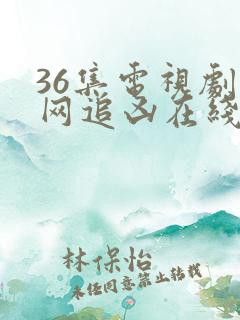 36集电視劇
网追凶在綫
林保怡
未经同意禁止转载